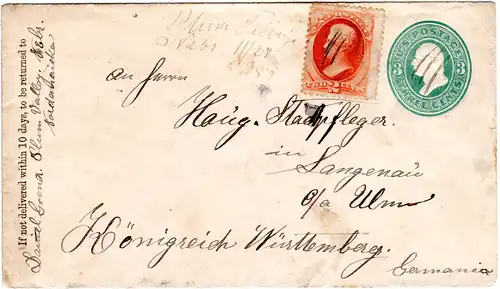 Plum Valley
Nebr. 11/27
U.S. POSTAGE
THREE CENTS
3 3
TWO CENTS
2
An Herrn
Haug. Stadtpfleger.
in
Langenau
o/a Ulm
Königreich Württemberg.
Germania
If not delivered within 10 days, to be returned to
Plum Valley. Nebr.
Nordamerika